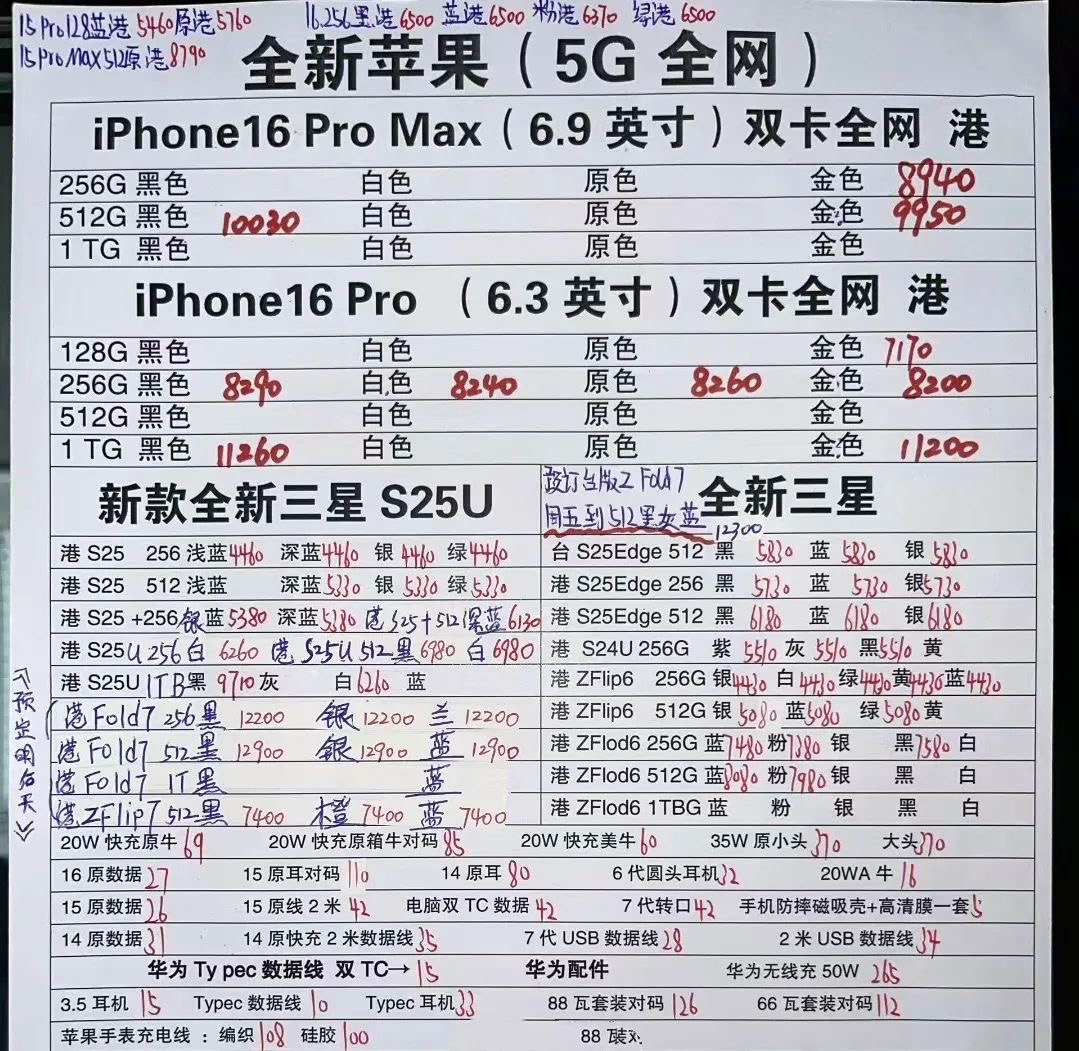 15 Pro 128蓝港 5460 原港 5760 16.256 黑港 6500 蓝港 6500 粉港 6370 绿港 6500
15 Pro Max 512原港 8790
全新苹果（5G 全网）
iPhone16 Pro Max（6.9 英寸）双卡全网 港
256G 黑色 白色 原色 金色 8940
512G 黑色 10030 白色 原色 金色 9950
1 TG 黑色 白色 原色 金色
iPhone16 Pro （6.3 英寸）双卡全网 港
128G 黑色 白色 原色 金色 7170
256G 黑色 8290 白色 8240 原色 8260 金色 8200
512G 黑色 白色 原色 金色
1 TG 黑色 11260 白色 原色 金色 11200
新款全新三星 S25U
港 S25 256 浅蓝 4460 深蓝 4460 银 4460 绿 4460
港 S25 512 浅蓝 深蓝 5330 银 5330 绿 5330
港 S25 +256 银蓝 5380 深蓝 5380 港 S25+ 512 深蓝 6130
港 S25U 256 白 6260 港 S25U 512 黑 6980 白 6980
港 S25U 1TB 黑 9710 灰 白 6260 蓝
《预定明后天》
港 Fold7 256 黑 12200 银 12200 兰 12200
港 Fold7 512 黑 12900 银 12900 蓝 12900
港 Fold7 1T 黑 蓝
港 ZFlip7 512 黑 7400 橙 7400 蓝 7400
预订台版Z Fold7
周五到 512黑灰蓝 12300
全新三星
台 S25Edge 512 黑 5830 蓝 5830 银 5830
港 S25Edge 256 黑 5730 蓝 5730 银 5730
港 S25Edge 512 黑 6180 蓝 6180 银 6180
港 S24U 256G 紫 5510 灰 5510 黑 5510 黄
港 ZFlip6 256G 银 4430 白 4430 绿 4430 黄 4430 蓝 4430
港 ZFlip6 512G 银 5080 蓝 5080 绿 5080 黄
港 ZFlod6 256G 蓝 7480 粉 7380 银 黑 7580 白
港 ZFlod6 512G 蓝 8080 粉 7980 银 黑 白
港 ZFlod6 1TBG 蓝 粉 银 黑 白
20W 快充原牛 69 20W 快充原箱牛对码 85 20W 快充美牛 60 35W 原小头 370 大头 370
16 原数据 27 15 原耳对码 110 14 原耳 80 6 代圆头耳机 32 20WA 牛 16
15 原数据 26 15 原线 2 米 42 电脑双 TC 数据 42 7 代转口 42 手机防摔磁吸壳+高清膜一套 5
14 原数据 31 14 原快充 2 米数据线 35 7 代 USB 数据线 28 2 米 USB 数据线 34
华为 Ty pec 数据线 双 TC→ 15 华为配件 华为无线充 50W 265
3.5 耳机 15 Typec 数据线 10 Typec 耳机 33 88 瓦套装对码 126 66 瓦套装对码 112
苹果手表充电线 ：编织 108 硅胶 100 88